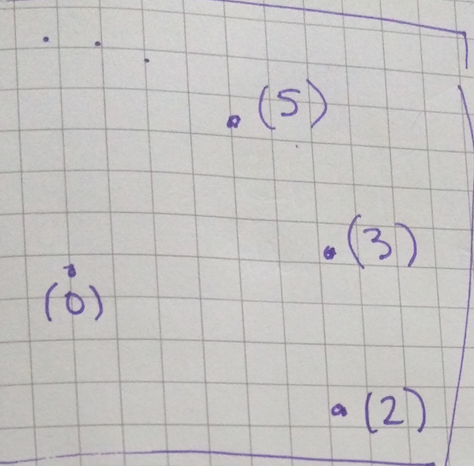 . . .
(5)
(3)
(0)
(2)